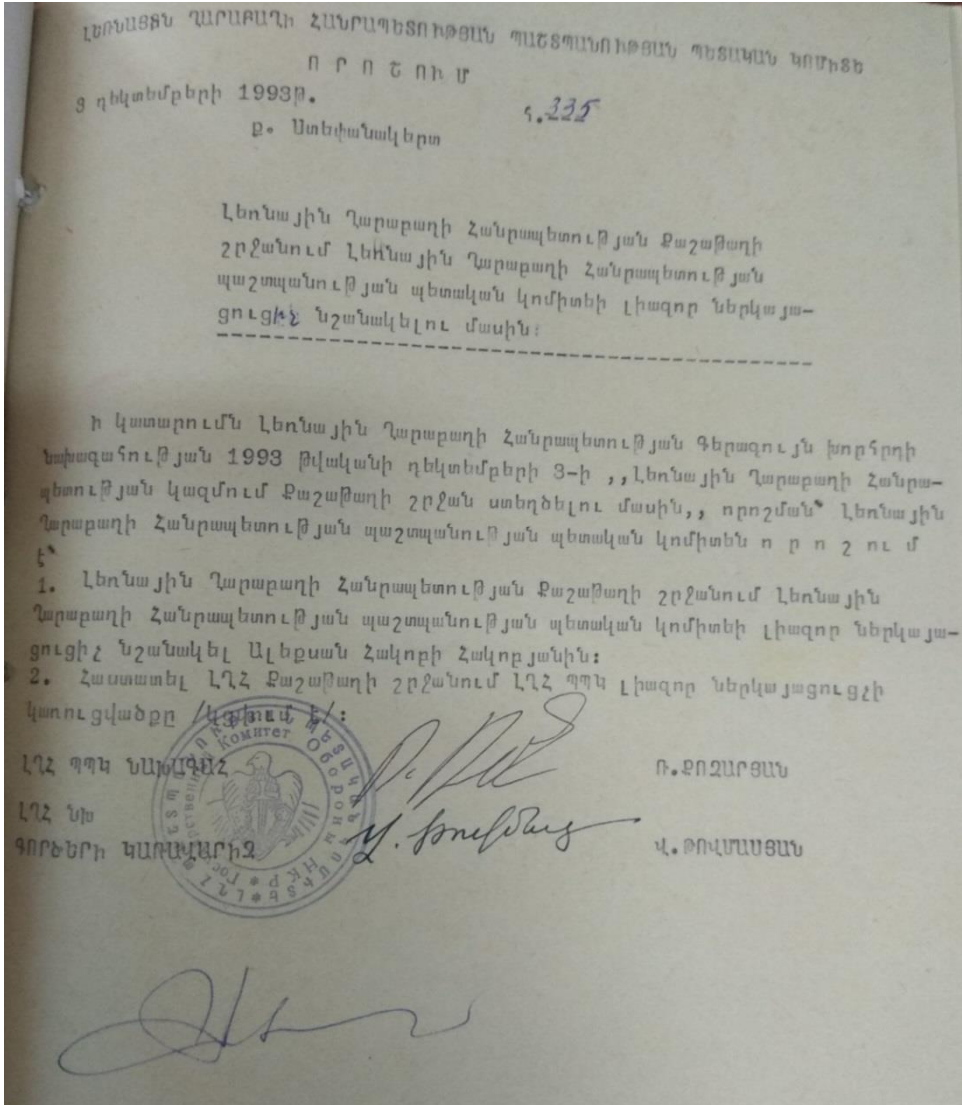 ԼԵՌՆԱՅԻՆ ՂԱՐԱԲԱՂԻ ՀԱՆՐԱՊԵՏՈՒԹՅԱՆ ՊԱՇՏՊԱՆՈՒԹՅԱՆ ՊԵՏԱԿԱՆ ԿՈՄԻՏԵ
Ո Ր Ո Շ ՈՒ Մ
3 դեկտեմբերի 1993թ.
հ.335
ք. Ստեփանակերտ
Լեռնային Ղարաբաղի Հանրապետության Քաշաթաղի
շրջանում Լեռնային Ղարաբաղի Հանրապետության
պաշտպանության պետական կոմիտեի լիազոր ներկայա-
ցուցիչ նշանակելու մասին:
Ի կատարումն Լեռնային Ղարաբաղի Հանրապետության Գերագույն խորհրդի
նախագահության 1993 թվականի դեկտեմբերի 3-ի ,,Լեռնային Ղարաբաղի Հանրա-
պետության կազմում Քաշաթաղի շրջան ստեղծելու մասին,, որոշման՝ Լեռնային
Ղարաբաղի Հանրապետության պաշտպանության պետական կոմիտեն ո ր ո շ ու մ
է՝
1. Լեռնային Ղարաբաղի Հանրապետության Քաշաթաղի շրջանում Լեռնային
Ղարաբաղի Հանրապետության պաշտպանության պետական կոմիտեի լիազոր ներկայա-
ցուցիչ նշանակել Ալեքսան Հակոբի Հակոբյանին:
2. Հաստատել ԼՂՀ Քաշաթաղի շրջանում ԼՂՀ ՊՊԿ լիազոր ներկայացուցչի
կառուցվածքը /կցվում է/:
ԼՂՀ ՊՊԿ ՆԱԽԱԳԱՀ
Ռ.ՔՈՉԱՐՅԱՆ
ԼՂՀ ՆԽ
ԳՈՐԾԵՐԻ ԿԱՌԱՎԱՐԻՉ
Վ.ԹՈՎՄԱՍՅԱՆ
ԼՂՀ ՊԵՏՊԱՇՏՊԱՆՈՒԹՅԱՆ ՊԵՏԱԿԱՆ ԿՈՄԻՏԵ
Государственный Комитет Обороны НКР